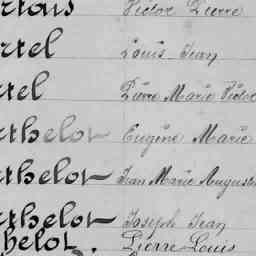 rtois Victor Pierre
rtel Louis Jean
rtel Pierre Marie Victor
rthelot Eugène Marie
rthelot Jean Marie Auguste
rthelot Joseph Jean
helot. Pierre Louis